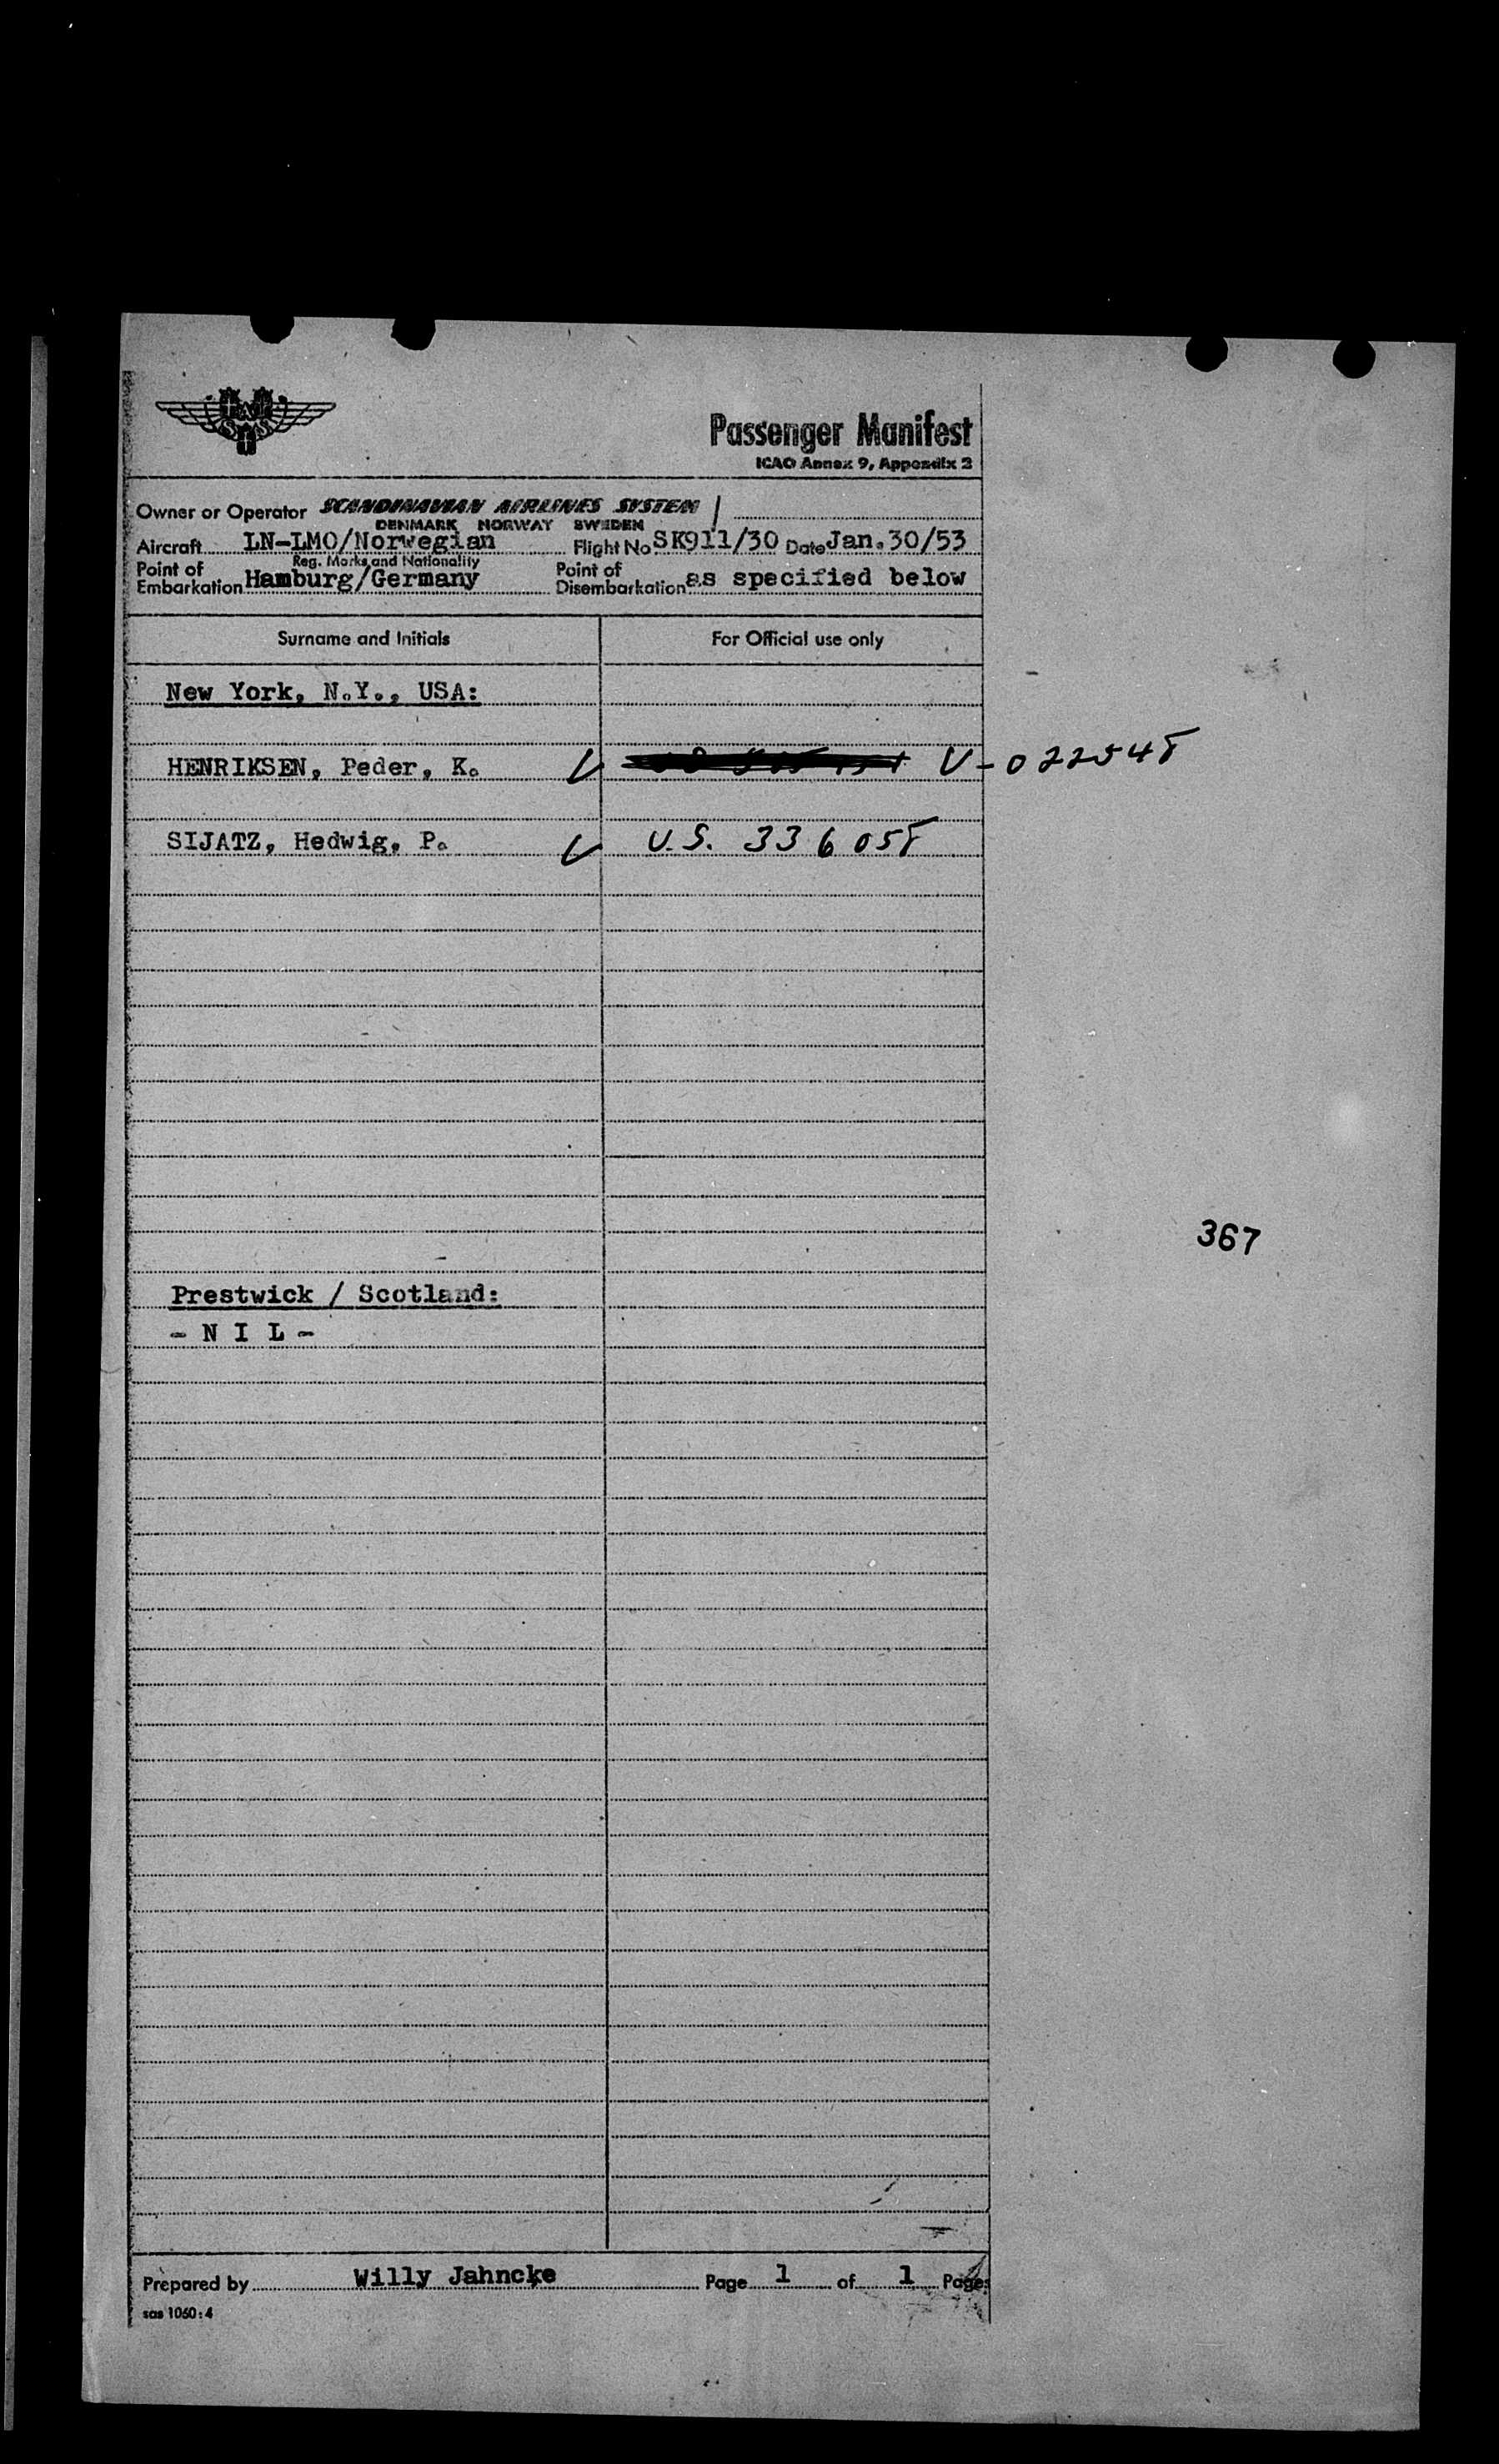 Passenger Manifest
ICAO Annex 9, Appendix 2
Owner or Operator SCANDINAVIAN AIRLINES SYSTEM
DENMARK NORWAY SWEDEN
Aircraft LN-LMO/Norwegian Flight No SK911/30 Date Jan.30/53
Reg. Marks and Nationality
Point of Embarkation Hamburg/Germany Point of Disembarkation as specified below
Surname and Initials For Official use only
New York, N.Y., USA:
HENRIKSEN, Peder, K. V-022548
SIJATZ, Hedwig, P. U.S. 336058
367
Prestwick / Scotland:
- N I L -
Prepared by Willy Jahncke Page 1 of 1 Pages
sas 1060:4